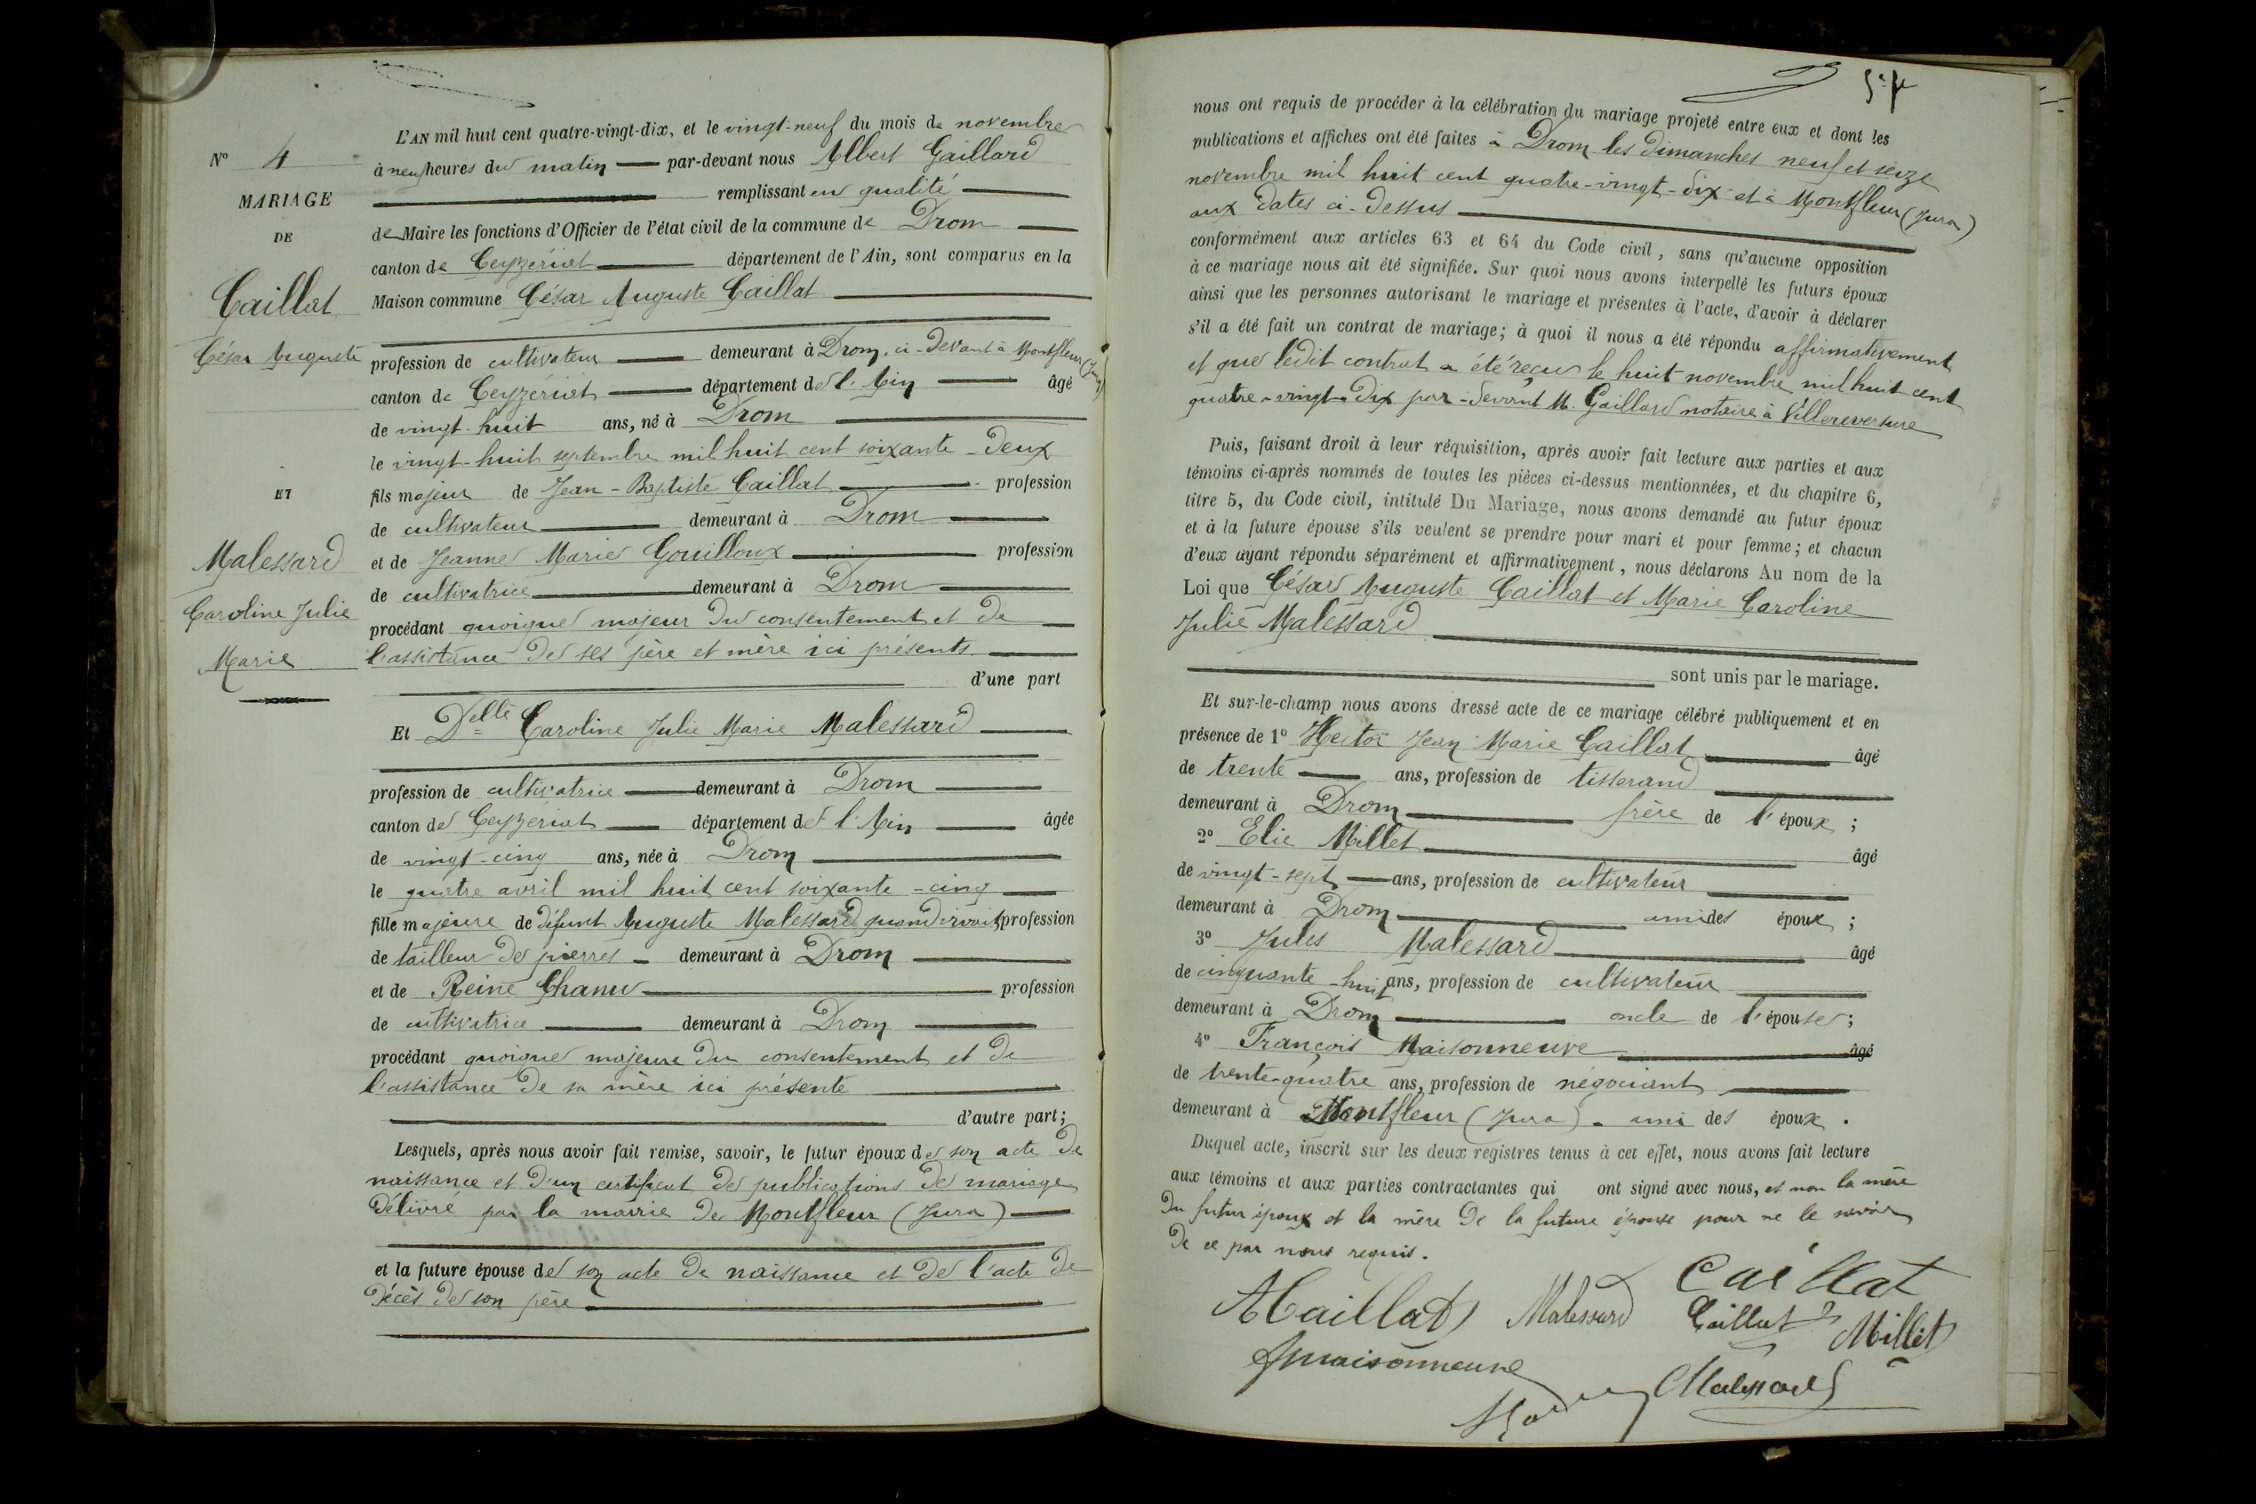 N° 4
MARIAGE
DE
Caillat
César Auguste
ET
Malessard
Caroline Julie
Marie
L'AN mil huit cent quatre-vingt-dix, et le vingt-neuf du mois de novembre
à neuf heures du matin par-devant nous Albert Gaillard
remplissant en qualité
de Maire les fonctions d'Officier de l'état civil de la commune de Drom
canton de Ceyzériat département de l'Ain, sont comparus en la
Maison commune César Auguste Caillat
profession de cultivateur demeurant à Drom, ci-devant à Montfleur (Jura)
canton de Ceyzériat département de l'Ain âgé
de vingt-huit ans, né à Drom
le vingt-huit septembre mil huit cent soixante-deux
fils majeur de Jean-Baptiste Caillat profession
de cultivateur demeurant à Drom
et de Jeanne Marie Gouilloux profession
de cultivatrice demeurant à Drom
procédant quoique majeur du consentement et de
l'assistance de ses père et mère ici présents
d'une part
Et Delle Caroline Julie Marie Malessard
profession de cultivatrice demeurant à Drom
canton de Ceyzeriat département de l'Ain âgée
de vingt-cinq ans, née à Drom
le quatre avril mil huit cent soixante-cinq
fille majeure de défunt Auguste Malessard quand vivait profession
de tailleur de pierres demeurant à Drom
et de Reine Chanu profession
de cultivatrice demeurant à Drom
procédant quoique majeure du consentement et de
l'assistance de sa mère ici présente
d'autre part;
Lesquels, après nous avoir fait remise, savoir, le futur époux de son acte de
naissance et d'un certificat de publications de mariage
délivré par la mairie de Montfleur (Jura)
et la future épouse de son acte de naissance et de l'acte de
décès de son père
nous ont requis de procéder à la célébration du mariage projeté entre eux et dont les
publications et affiches ont été faites à Drom les dimanches neuf et seize
novembre mil huit cent quatre-vingt-dix et à Montfleur (Jura)
aux dates ci-dessus
conformément aux articles 63 et 64 du Code civil, sans qu'aucune opposition
à ce mariage nous ait été signifiée. Sur quoi nous avons interpellé les futurs époux
ainsi que les personnes autorisant le mariage et présentes à l'acte, d'avoir à déclarer
s'il a été fait un contrat de mariage; à quoi il nous a été répondu affirmativement
et que ledit contrat a été reçu le huit novembre mil huit cent
quatre-vingt-dix par-devant M. Gaillard notaire à Villereversure
Puis, faisant droit à leur réquisition, après avoir fait lecture aux parties et aux
témoins ci-après nommés de toutes les pièces ci-dessus mentionnées, et du chapitre 6,
titre 5, du Code civil, intitulé Du Mariage, nous avons demandé au futur époux
et à la future épouse s'ils veulent se prendre pour mari et pour femme; et chacun
d'eux ayant répondu séparément et affirmativement, nous déclarons Au nom de la
Loi que César Auguste Caillat et Marie Caroline
Julie Malessard
sont unis par le mariage.
Et sur-le-champ nous avons dressé acte de ce mariage célébré publiquement et en
présence de 1° Hector Jean Marie Caillat âgé
de trente ans, profession de tisserand
demeurant à Drom frère de l'époux ;
2° Elie Millet âgé
de vingt-sept ans, profession de cultivateur
demeurant à Drom ami des époux ;
3° Jules Malessard âgé
de cinquante-huit ans, profession de cultivateur
demeurant à Drom oncle de l'épouse ;
4° François Maisonneuve âgé
de trente-quatre ans, profession de négociant
demeurant à Montfleur (Jura) ami des époux.
Duquel acte, inscrit sur les deux registres tenus à cet effet, nous avons fait lecture
aux témoins et aux parties contractantes qui ont signé avec nous, et non la mère
du futur époux et la mère de la future épouse pour ne le savoir
de ce par nous requis.
Caillat
Malessard Caillat Millet
Maisonneuve
Malessard